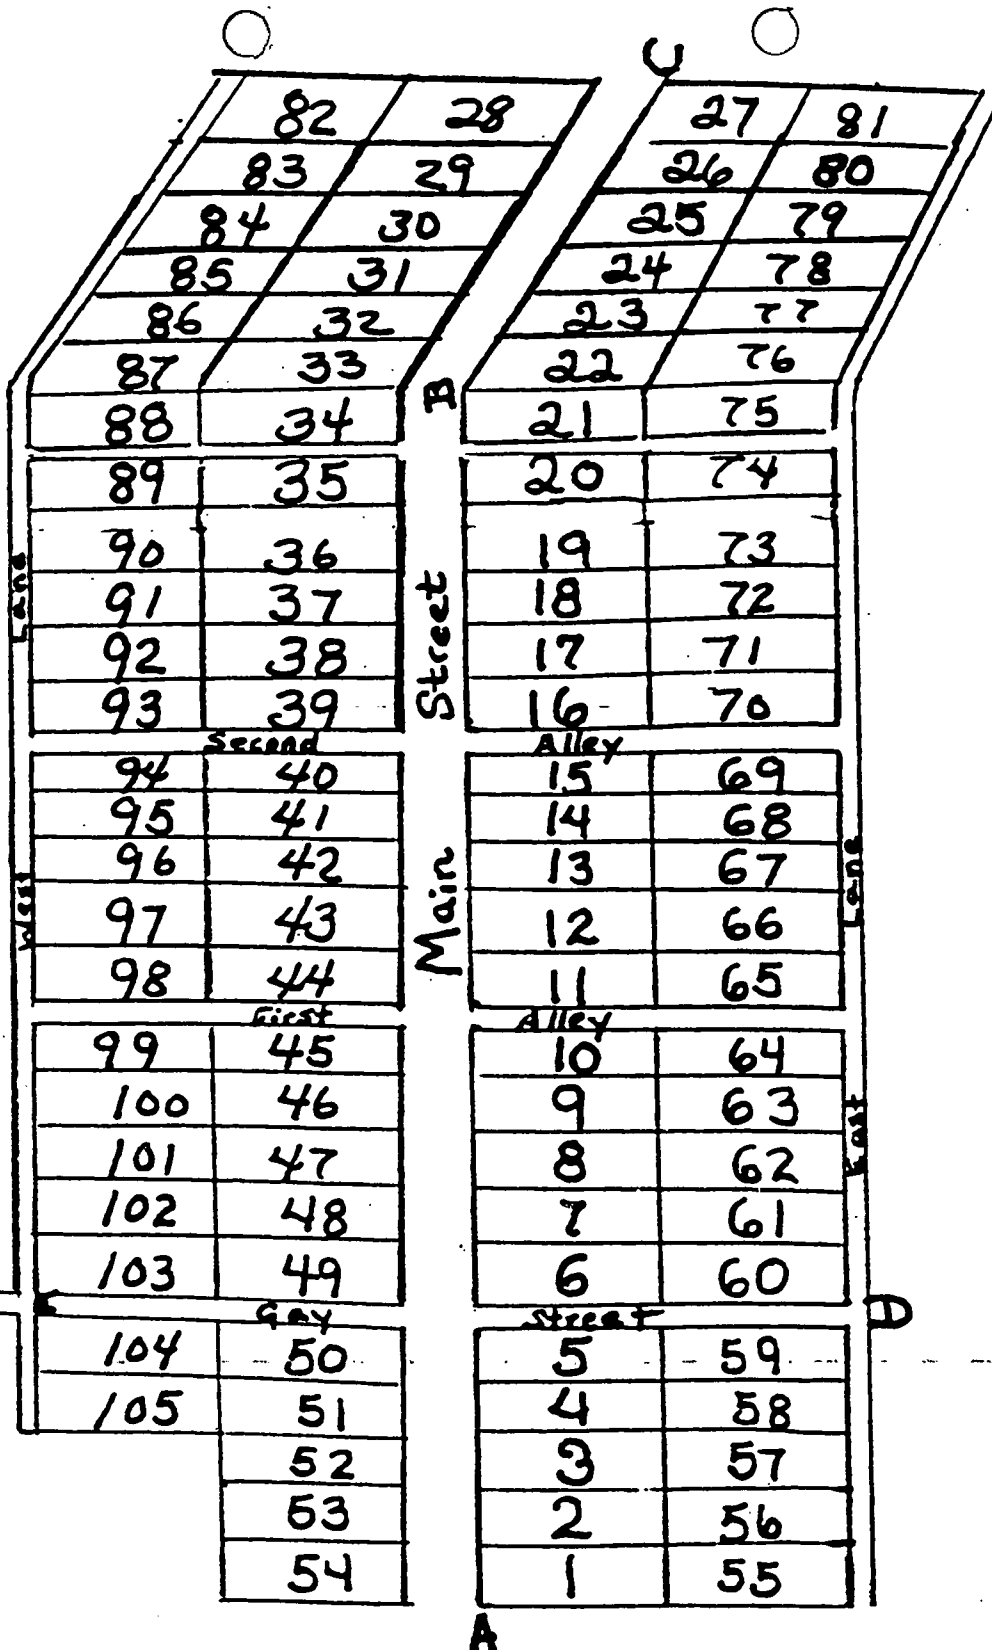 C
82 28 27 81
83 29 26 80
84 30 25 79
85 31 24 78
86 32 23 77
87 33 22 76
B
88 34 21 75
89 35 20 74
90 36 19 73
91 37 18 72
92 38 17 71
93 39 16 70
Second Alley
94 40 15 69
95 41 14 68
96 42 13 67
97 43 12 66
98 44 11 65
First Alley
99 45 10 64
100 46 9 63
101 47 8 62
102 48 7 61
103 49 6 60
E Gay Street D
104 50 5 59
105 51 4 58
52 3 57
53 2 56
54 1 55
A
West Lane
Main Street
East Lane